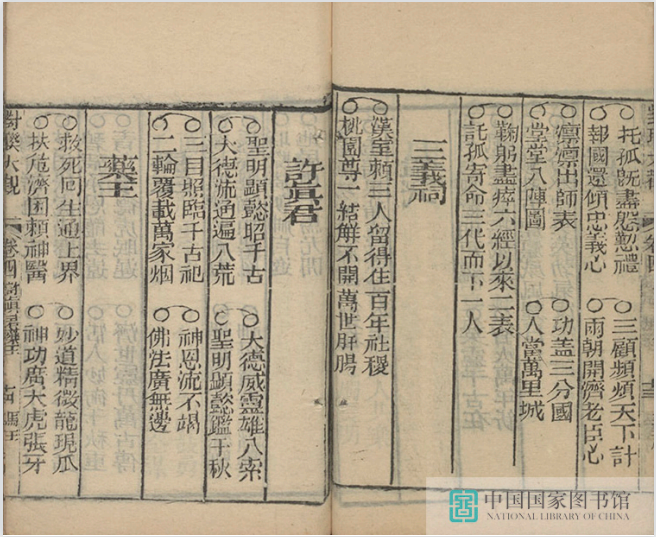 托孤既盡慇懃禮
報國還傾忠義心
三顧頻煩天下計
兩朝開濟老臣心
凜凜出師表
堂堂八陣圖
功盖三分國
人當萬里城
鞠躬盡瘁六經以來二表
託孤寄命三代而下一人
三義祠
漢室賴三人留得住一百年社稷
桃園尊一結解不開萬世肝腸
許眞君
聖明顯懿昭千古
大德流通遍八荒
大德威靈雄八索
聖明顯懿鑑千秋
三目照臨千古祀
二輪覆載萬家烟
神恩流不竭
佛法廣無邊
藥王
救死回生通上界
扶危濟困賴神醫
妙道精微龍現瓜
神功廣大虎張牙
大觀 卷四
中国国家图书馆
NATIONAL LIBRARY OF CHINA